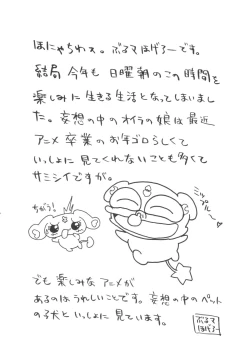 ほにゃちわぁ。ぶるマほげろーです。
結局今年も日曜朝のこの時間を
楽しみに生きる生活となってしまいまし
た。妄想の中のオイラの娘は最近
アニメ卒業のお年ゴロらしくて
いっしょに見てくれないことも多くて
サミシイですが。
ちがう!
ミップル〜
でも楽しみなアニメが
あるのはうれしいことです。妄想の中のペット
の子犬といっしょに見ています。
ぶるマ
ほげろー